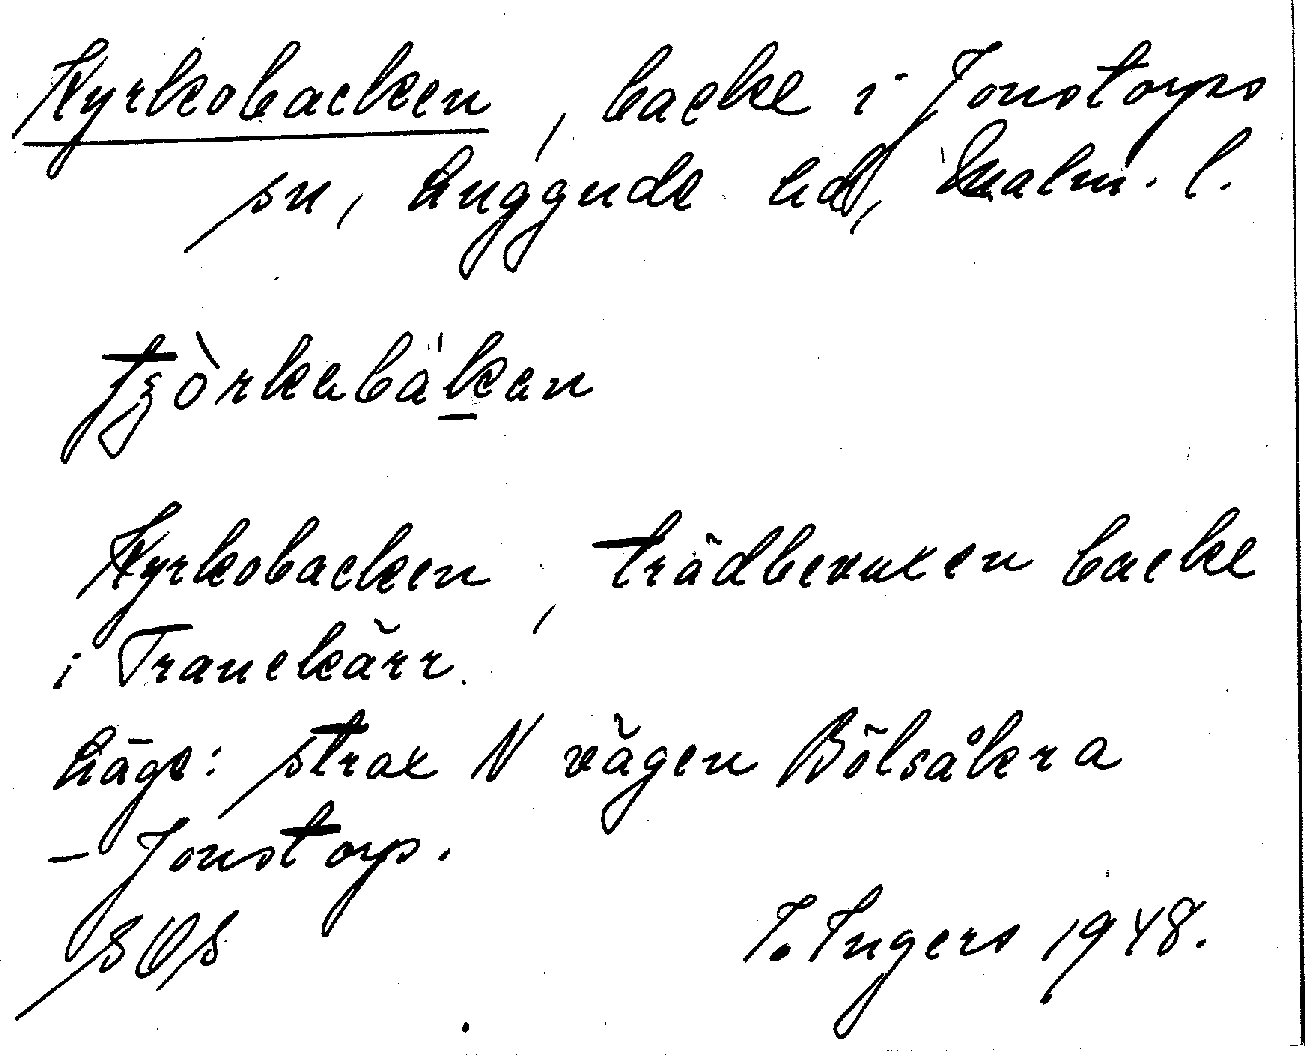 Kyrkobacken, backe i Jonstorps
sn, Luggude hd, Malm. l.
Kyrkobacken, trädbevuxen backe
i Tranekärr.
Läge: strax N vägen Bölsåkra
– Jonstorp.
SOS I. Ingers 1948.